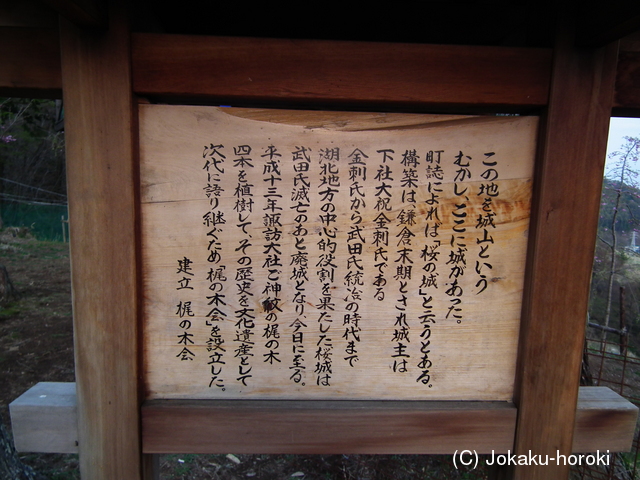 この地を城山という
むかし、ここに城があった。
町誌によれば「桜の城」と云うとある。
構築は鎌倉末期とされ城主は
下社大祝金刺氏である
金刺氏から武田氏統治の時代まで
湖北地方の中心的役割を果たした桜城は
武田氏滅亡のあと廃城となり、今日に至る。
平成十三年諏訪大社ご神紋の梶の木
四本を植樹して、その歴史を文化遺産として
次代に語り継ぐため「梶の木会」を設立した。
建立 梶の木会
(C) Jokaku-horoki